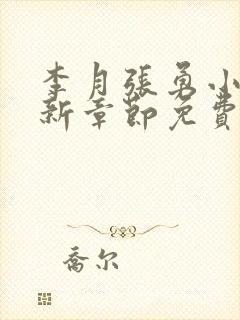 李月張勇小
新章節免費
喬尔